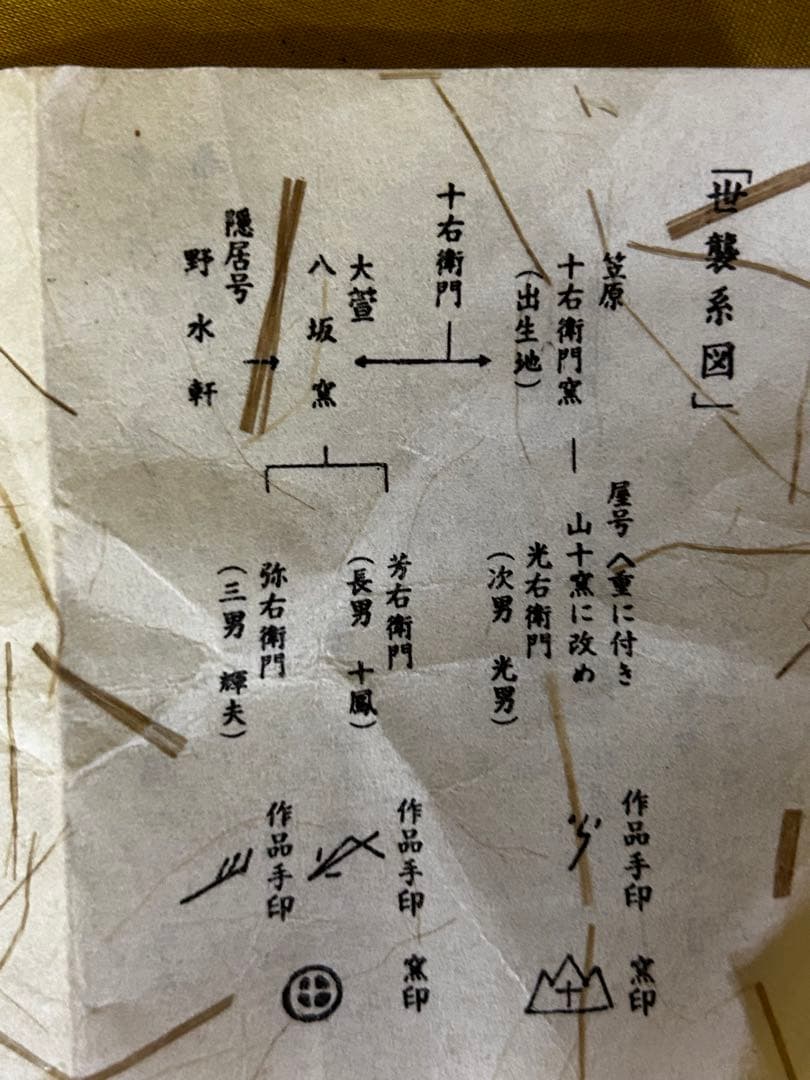 「世襲系図」
笠原
十右衛門窯
(出生地)
屋号へ重に付き
山十窯に改め
光右衛門
(次男 光男)
作品手印
窯印
十右衛門
大萱
八坂窯
芳右衛門
(長男 十鳳)
作品手印
窯印
弥右衛門
(三男 輝夫)
作品手印
隠居号
野水軒